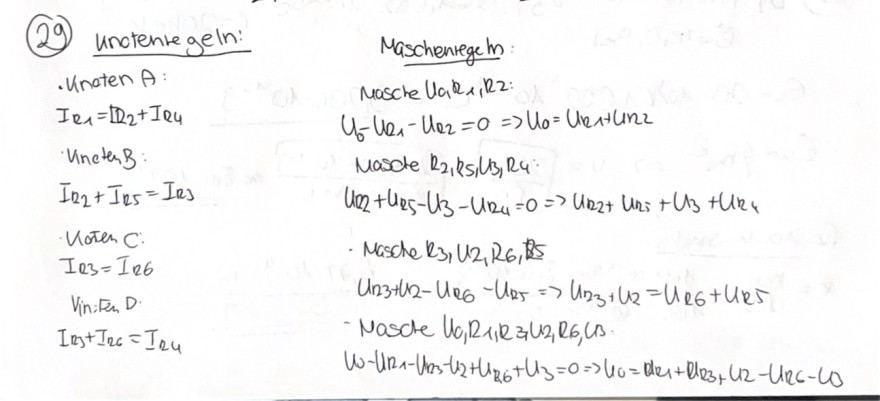 29 Unotenregeln:
·Unoten A:
I_R1 = I_R2 + I_R4
·Unoten B:
I_R2 + I_R5 = I_R3
·Unoten C:
I_R3 = I_R6
D:
I_R3 + I_R6 = I_R4
Maschenregeln:
Masche U0, R1, R2:
U0 - UR1 - UR2 = 0 => U0 = UR1 + UR2
Masche R2, R5, U3, R4:
UR2 + UR5 - U3 - UR4 = 0 => UR2 + UR5 + U3 + UR4
· Masche R3, U2, R6, R5
UR3 + U2 - UR6 - UR5 => UR3 + U2 = UR6 + UR5
- Masche U0, R1, R3, U2, R6, U3.
U0 - UR1 - UR3 - U2 + UR6 + U3 = 0 => U0 = UR1 + UR3 + U2 - UR6 - U3